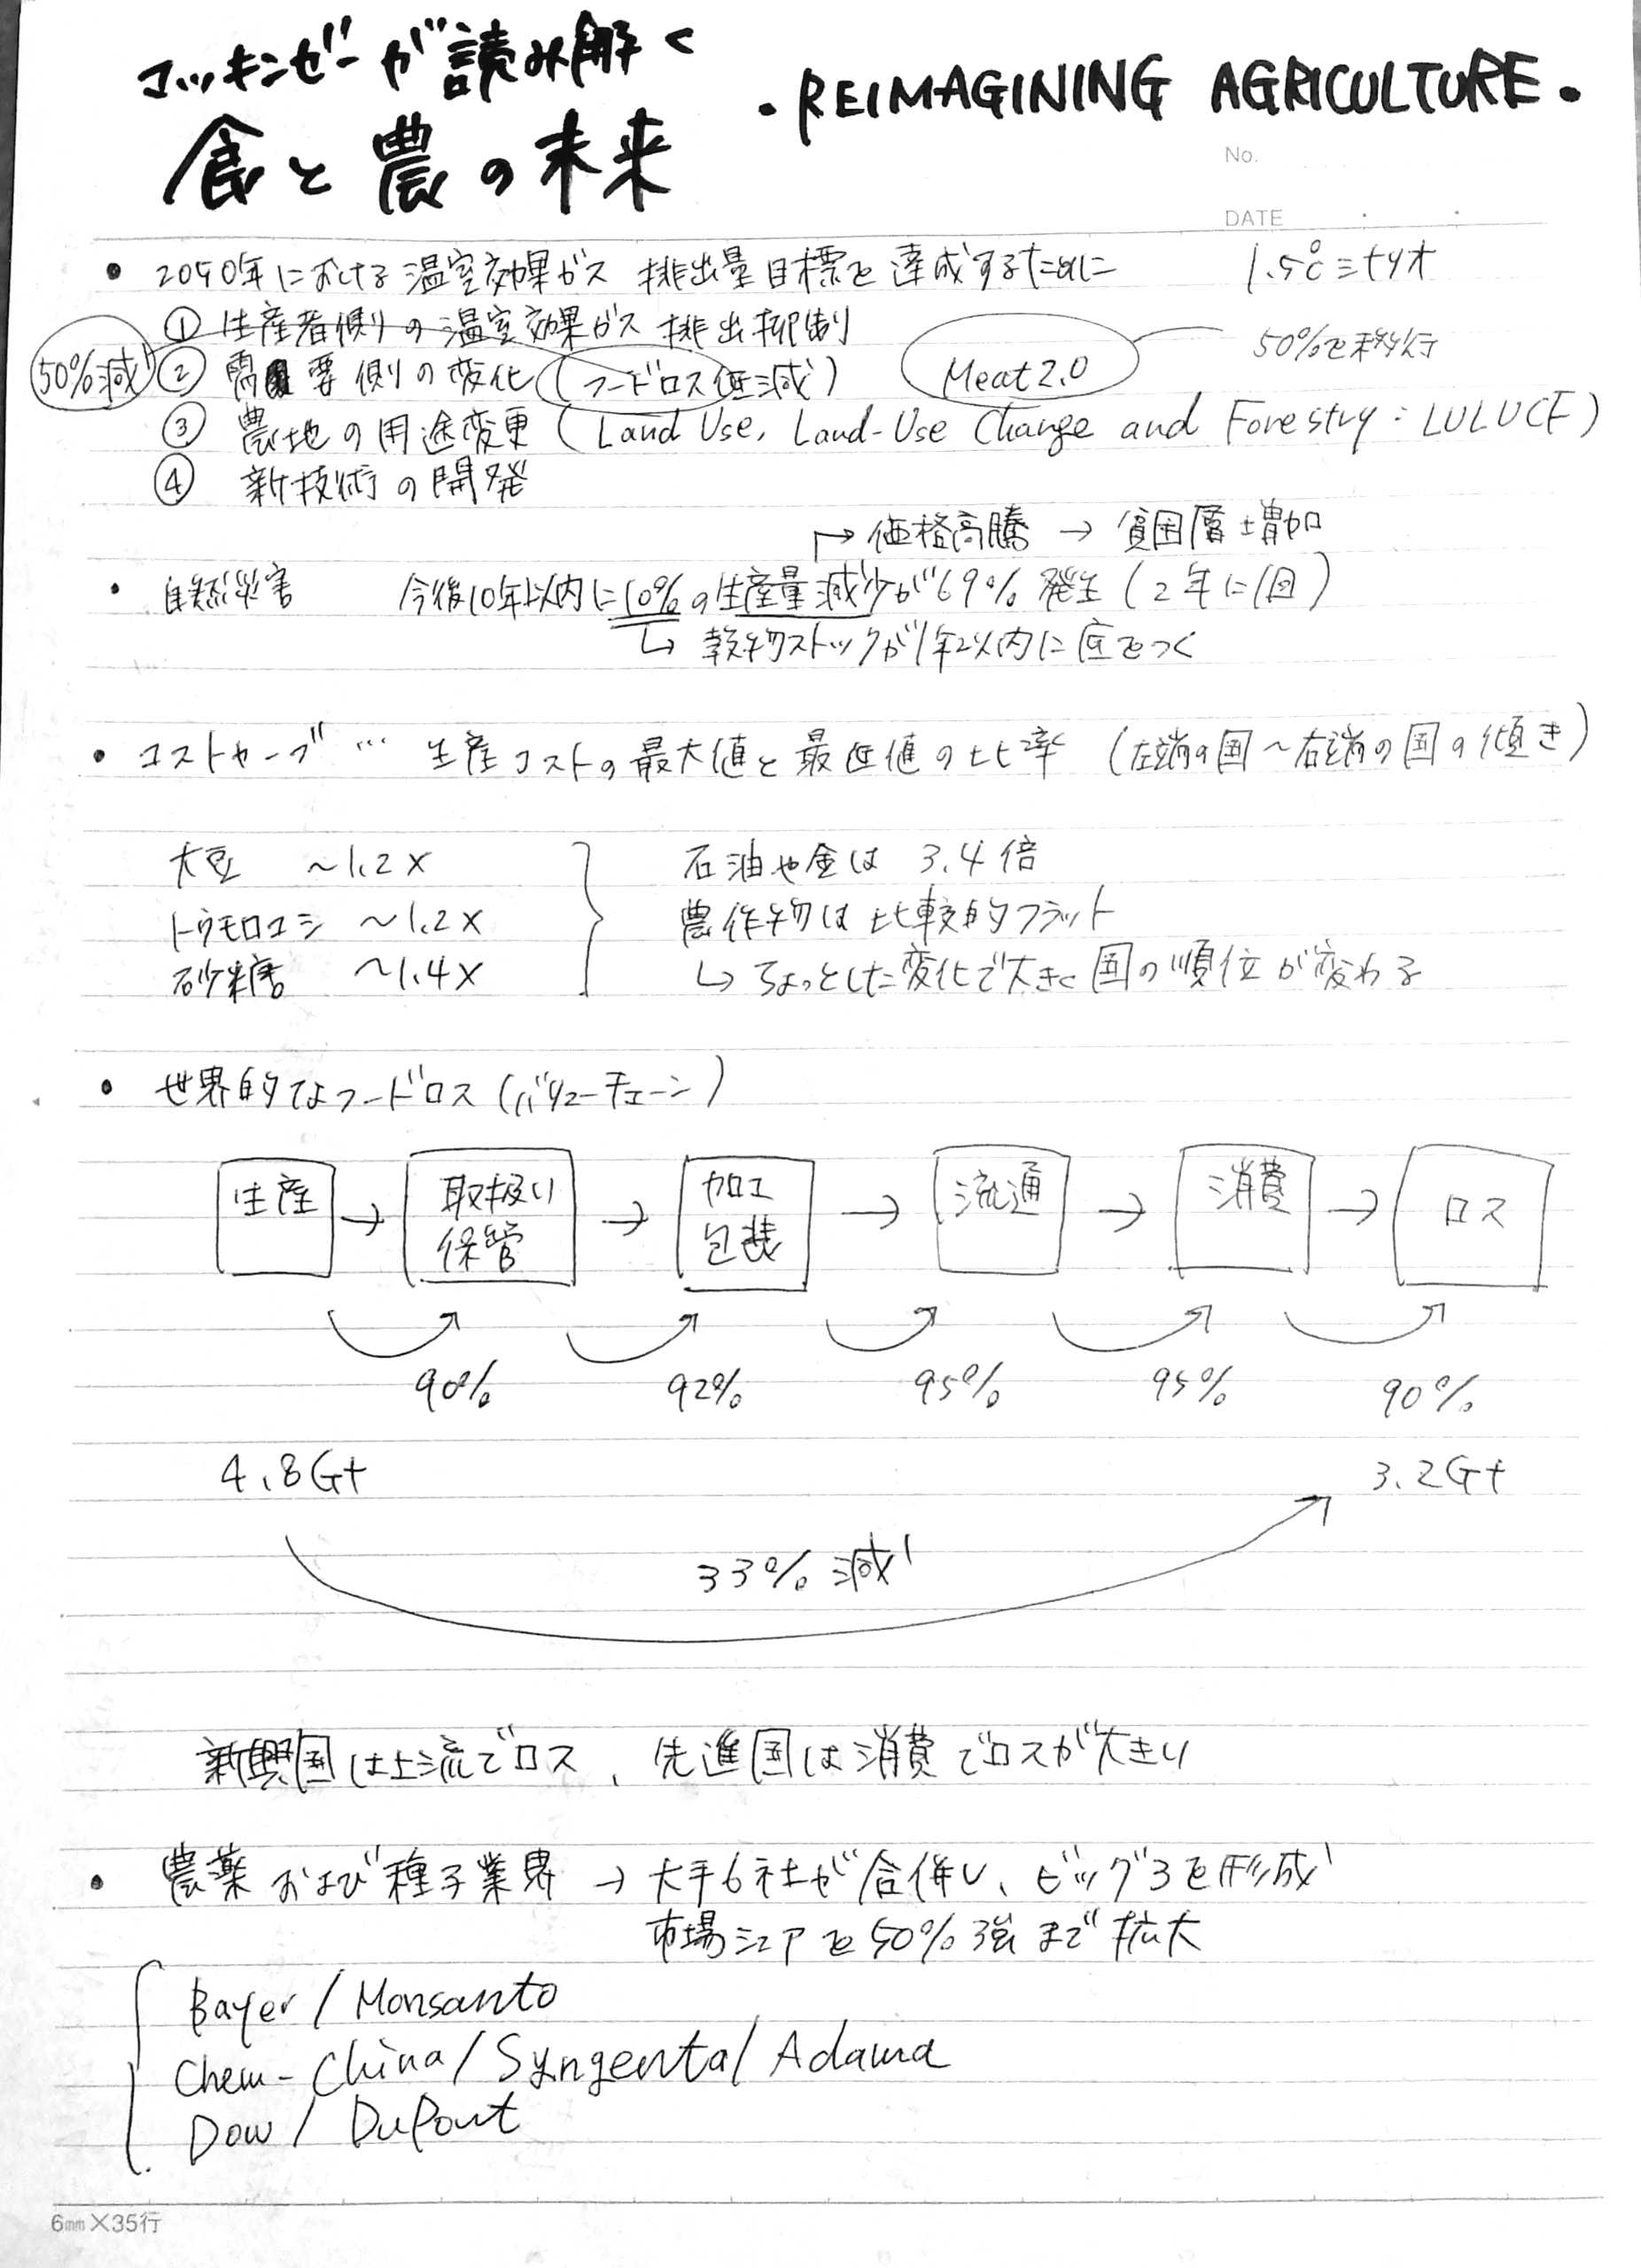 マッキンゼーが読み解く
食と農の未来
・REIMAGINING AGRICULTURE・
No.
DATE
● 2050年における温室効果ガス 排出量目標を達成するために 1.5℃シナリオ
① 生産者側の温室効果ガス 排出抑制
50%減 ② 需要側の変化 (フードロス低減) Meat2.0 50%を移行
③ 農地の用途変更 (Land Use, Land-Use Change and Forestry: LULUCF)
④ 新技術の開発
→ 価格高騰 → 貧困層増加
・ 自然災害 今後10年以内に10%の生産量減少が69%発生 (2年に1回)
↳ 穀物ストックが1年以内に底をつく
・ コストカーブ … 生産コストの最大値と最低値の比率 (左端の国〜右端の国の傾き)
大豆 〜1.2x 石油や金は 3.4倍
トウモロコシ 〜1.2x 農作物は比較的フラット
砂糖 〜1.4x ↳ ちょっとした変化で大きく国の順位が変わる
・ 世界的なフードロス (バリューチェーン)
生産 → 取扱い 保管 → 加工 包装 → 流通 → 消費 → ロス
90% 92% 95% 95% 90%
4.8Gt 3.2Gt
33%減
新興国は上流でロス、先進国は消費でロスが大きい
・ 農薬および種子業界 → 大手6社が合併し、ビッグ3を形成
市場シェアを50%強まで拡大
Bayer / Monsanto
Chem-China / Syngenta / Adama
Dow / DuPont
6mm×35行